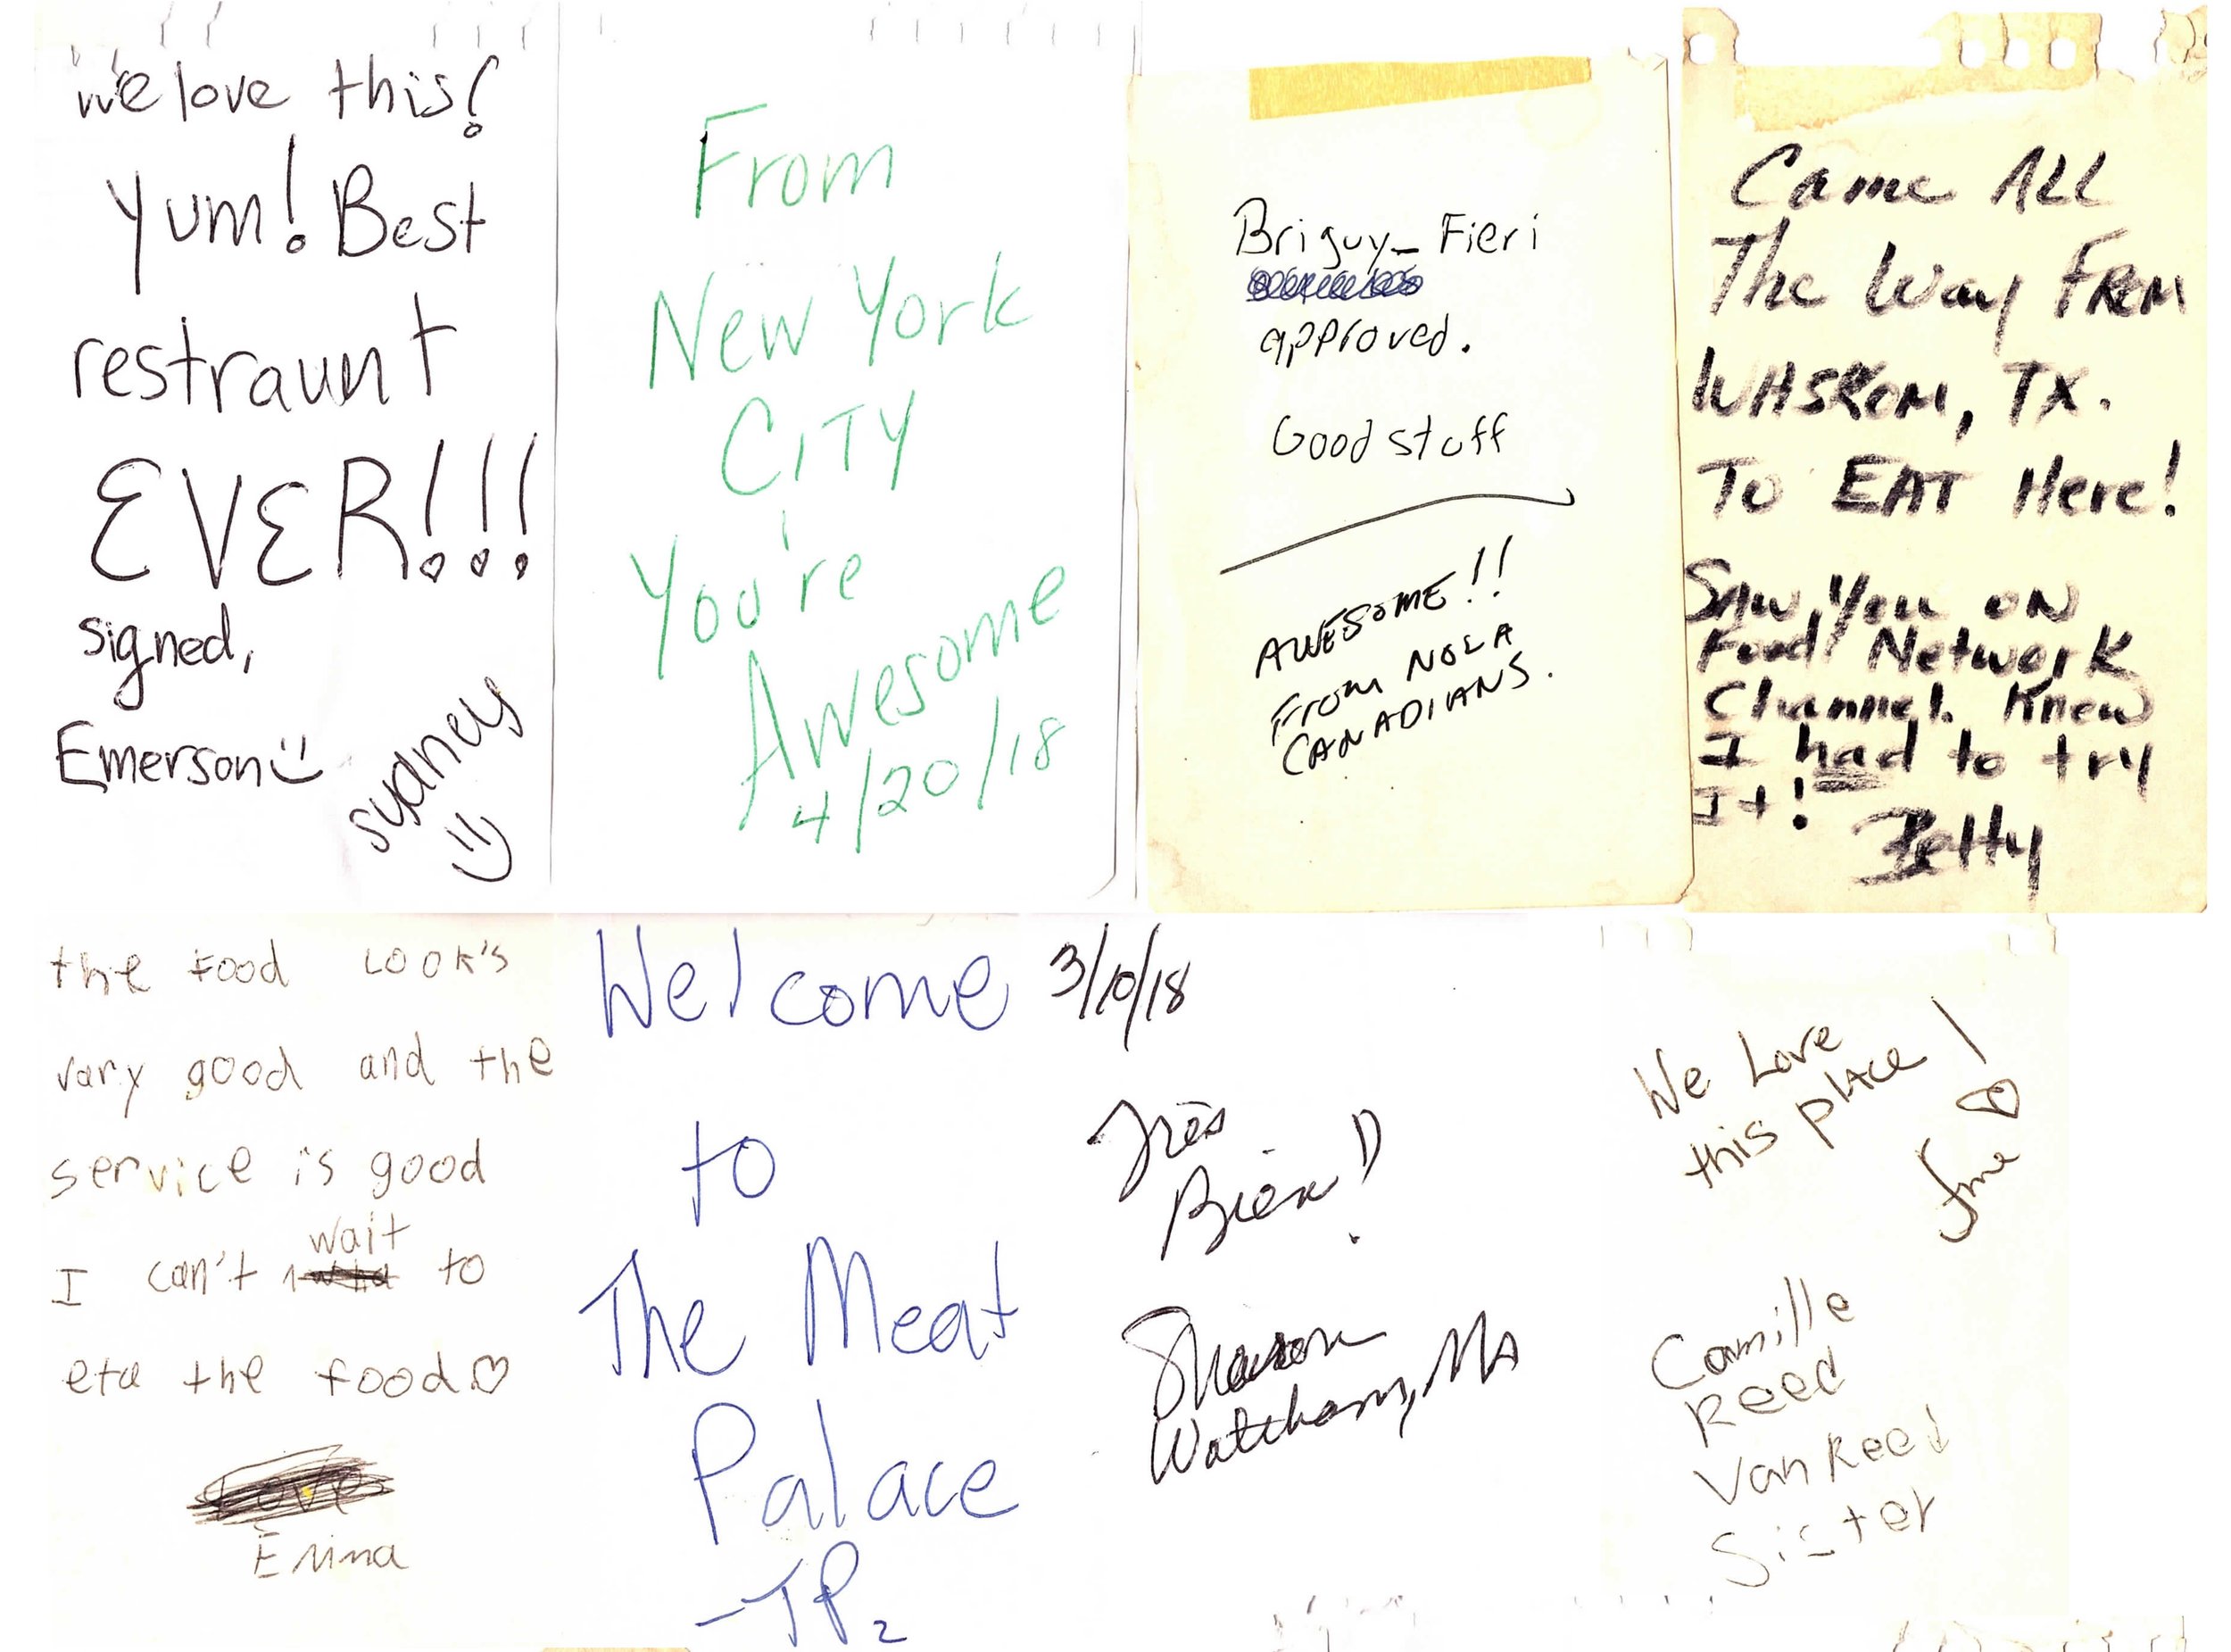 we love this!
Yum! Best
restraunt
EVER!!!
signed,
Emerson
sydney
From
New York
CITY
You're
Awesome
4/20/18
Briguy- Fieri
approved.
Good stuff
AWESOME!!
From NOLA
CANADIANS.
Came ALL
The Way FROM
WASKOM, TX.
To EAT Here!
Saw You ON
Food Network
Channel. Knew
I had to try
It!
Betty
the food LOOK's
vary good and the
service is good
wait
I can't to
eta the food
Love
Emma
Welcome
to
The Meat
Palace
-JP2
3/10/18
Très
Bien!
Sharon
MA
We Love
this place!
Camille
Reed
Van Reed
Sister